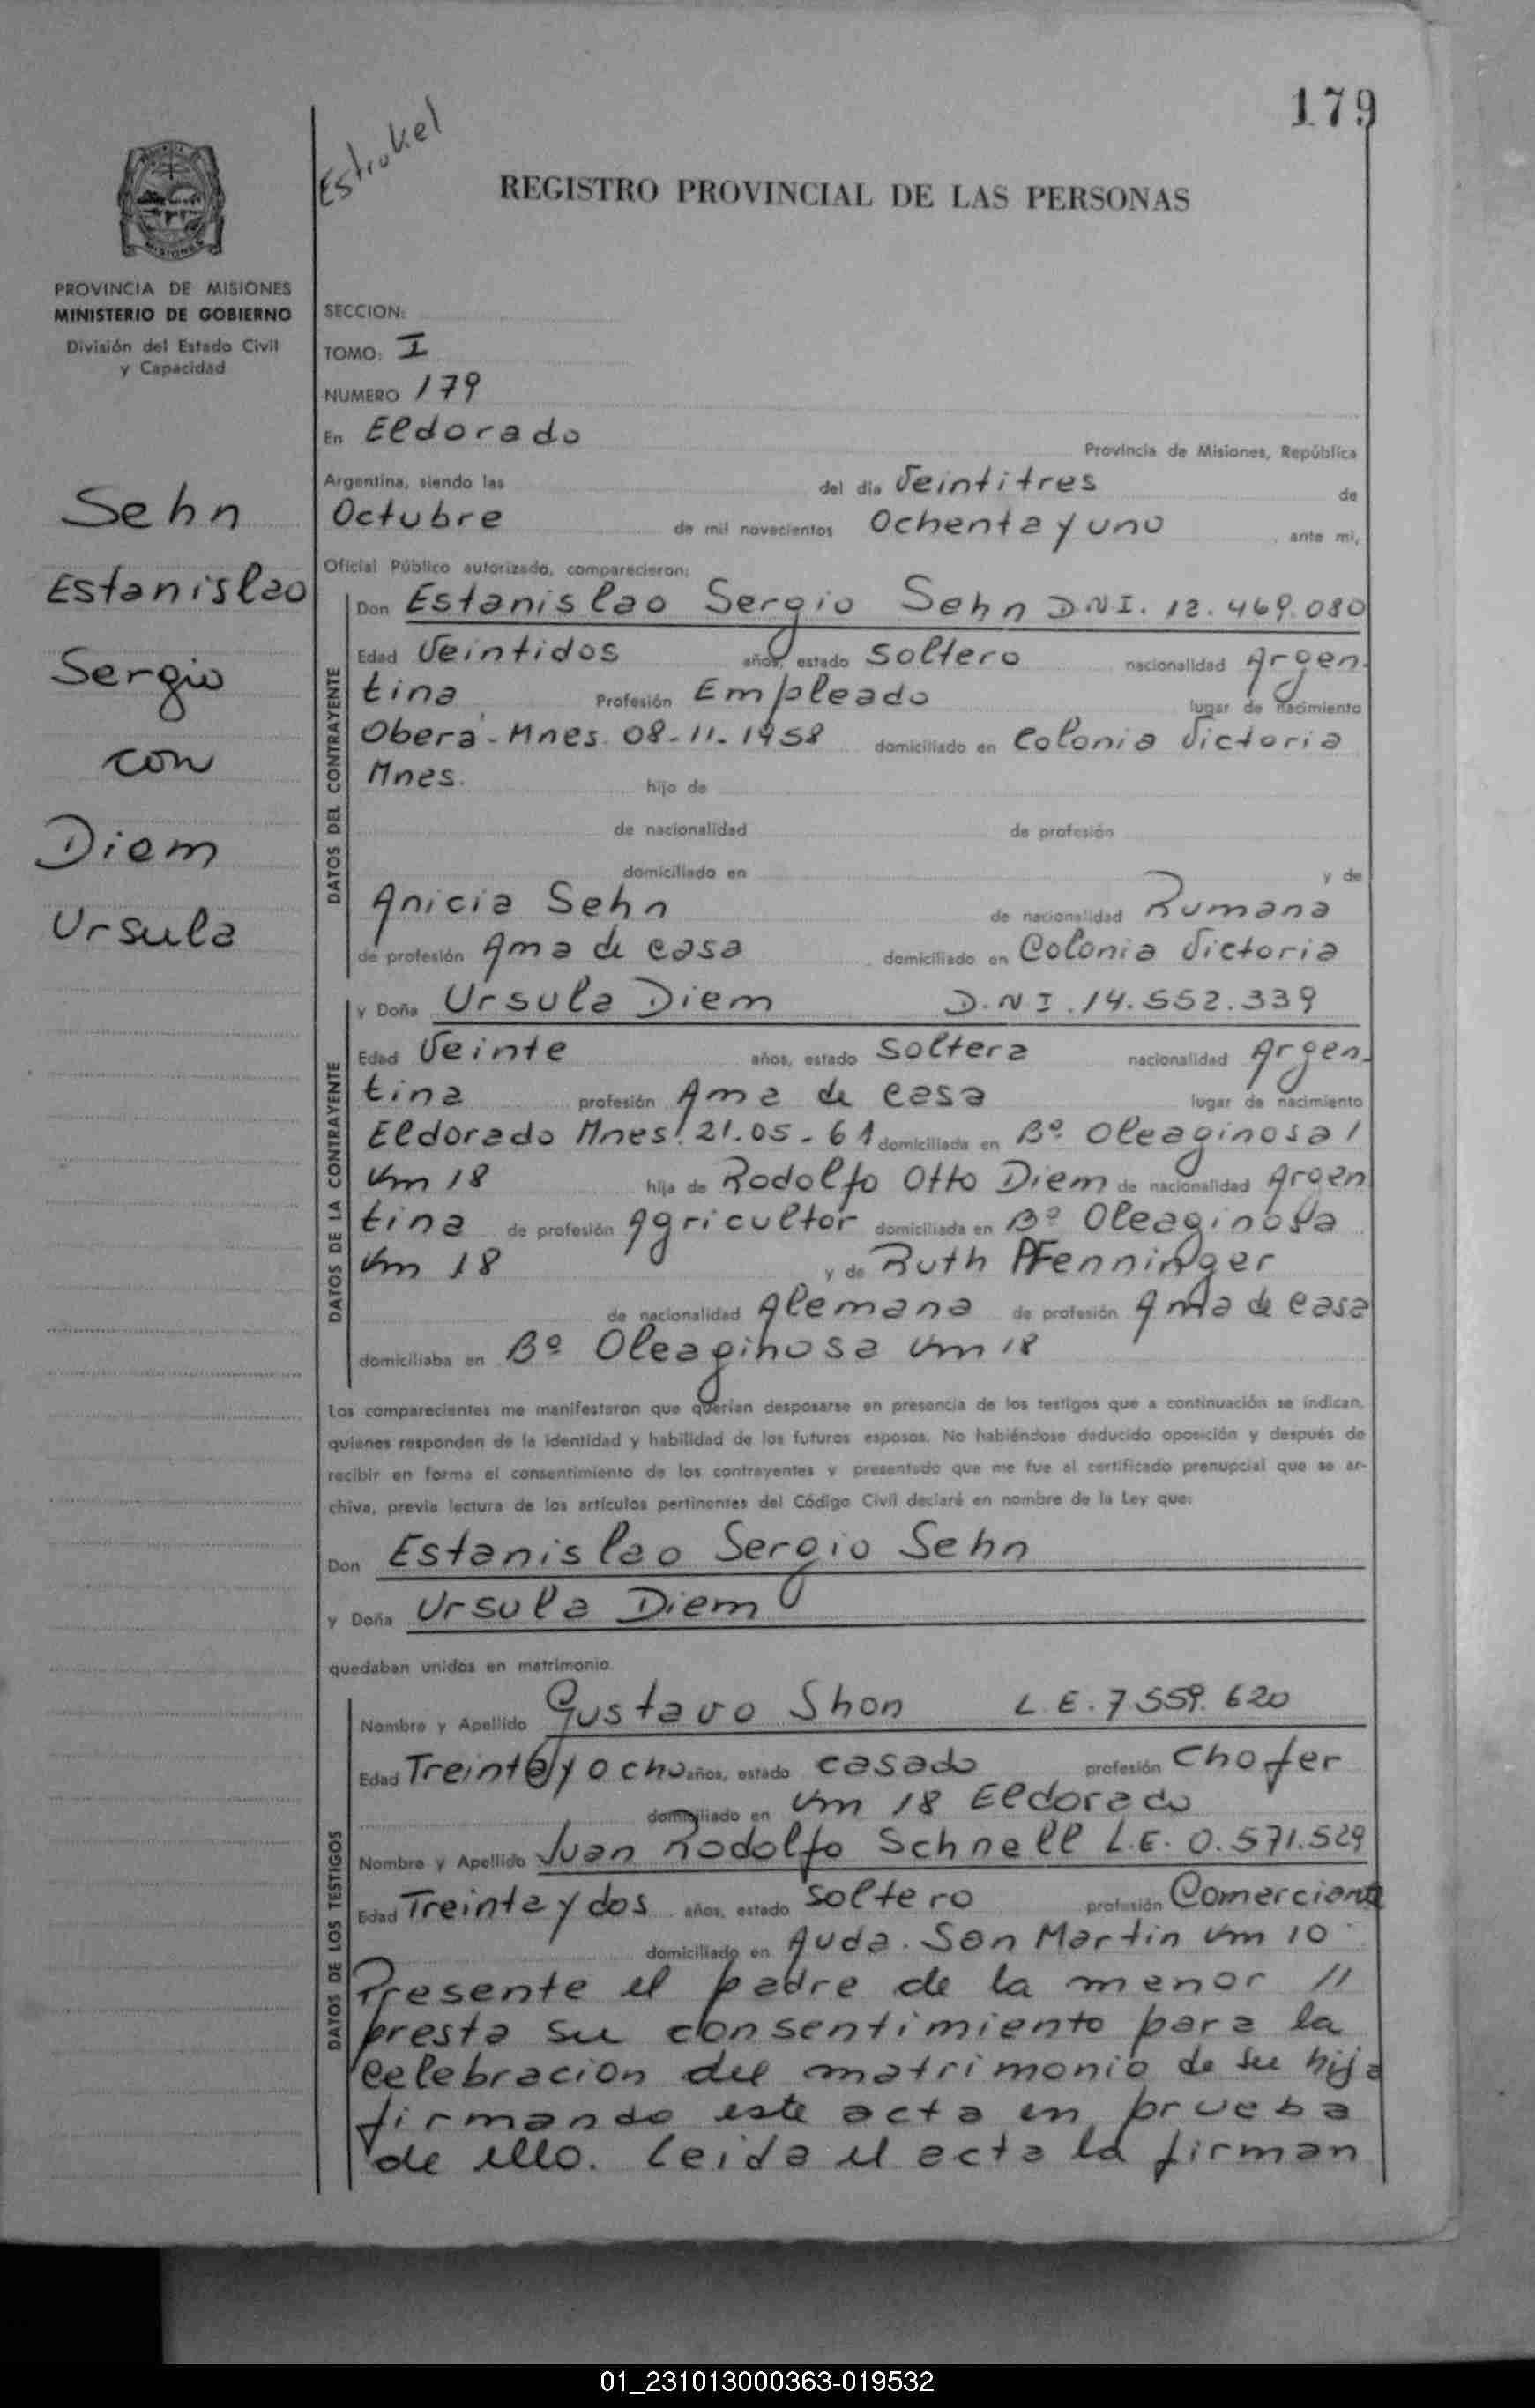 179
REGISTRO PROVINCIAL DE LAS PERSONAS
MISIONES
PROVINCIA DE MISIONES
MINISTERIO DE GOBIERNO
División del Estado Civil
y Capacidad
Sehn
Estanislao
Sergio
con
Diem
Ursula
SECCION:
TOMO: I
NUMERO 179
En Eldorado Provincia de Misiones, República
Argentina, siendo las del día Veintitres de
Octubre de mil novecientos Ochenta y uno ante mi,
Oficial Público autorizado, comparecieron:
DATOS DEL CONTRAYENTE
Don Estanislao Sergio Sehn D.N.I. 12.469.080
Edad Veintidos años, estado Soltero nacionalidad Argen-
tina Profesión Empleado lugar de nacimiento
Oberá - Mnes. 08-11-1958 domiciliado en Colonia Victoria
Mnes. hijo de
de nacionalidad de profesión
domiciliado en y de
Anicia Sehn de nacionalidad Rumana
de profesión Ama de casa domiciliado en Colonia Victoria
DATOS DE LA CONTRAYENTE
y Doña Ursula Diem D.N.I. 14.552.339
Edad Veinte años, estado Soltera nacionalidad Argen-
tina profesión Ama de casa lugar de nacimiento
Eldorado Mnes. 21.05-61 domiciliada en Bº Oleaginosa /
Km 18 hija de Rodolfo Otto Diem de nacionalidad Argen
tina de profesión Agricultor domiciliada en Bº Oleaginosa
Km 18 y de Ruth Pfenninger
de nacionalidad Alemana de profesión Ama de casa
domiciliaba en Bº Oleaginosa Km 18
Los comparecientes me manifestaron que querían desposarse en presencia de los testigos que a continuación se indican,
quienes responden de la identidad y habilidad de los futuros esposos. No habiéndose deducido oposición y después de
recibir en forma el consentimiento de los contrayentes y presentado que me fue el certificado prenupcial que se ar-
chiva, previa lectura de los artículos pertinentes del Código Civil declaré en nombre de la Ley que:
Don Estanislao Sergio Sehn
y Doña Ursula Diem
quedaban unidos en matrimonio.
DATOS DE LOS TESTIGOS
Nombre y Apellido Gustavo Shon L.E. 7.559.620
Edad Treinta y ocho años, estado casado profesión Chofer
domiciliado en Km 18 Eldorado
Nombre y Apellido Juan Rodolfo Schnell L.E. 0.571.529
Edad Treinta y dos años, estado Soltero profesión Comerciante
domiciliado en Avda. San Martin Km 10
Presente el padre de la menor //
presta su consentimiento para la
celebracion del matrimonio de su hija
firmando este acta en prueba
de ello. Leida el acta la firman
01_231013000363-019532